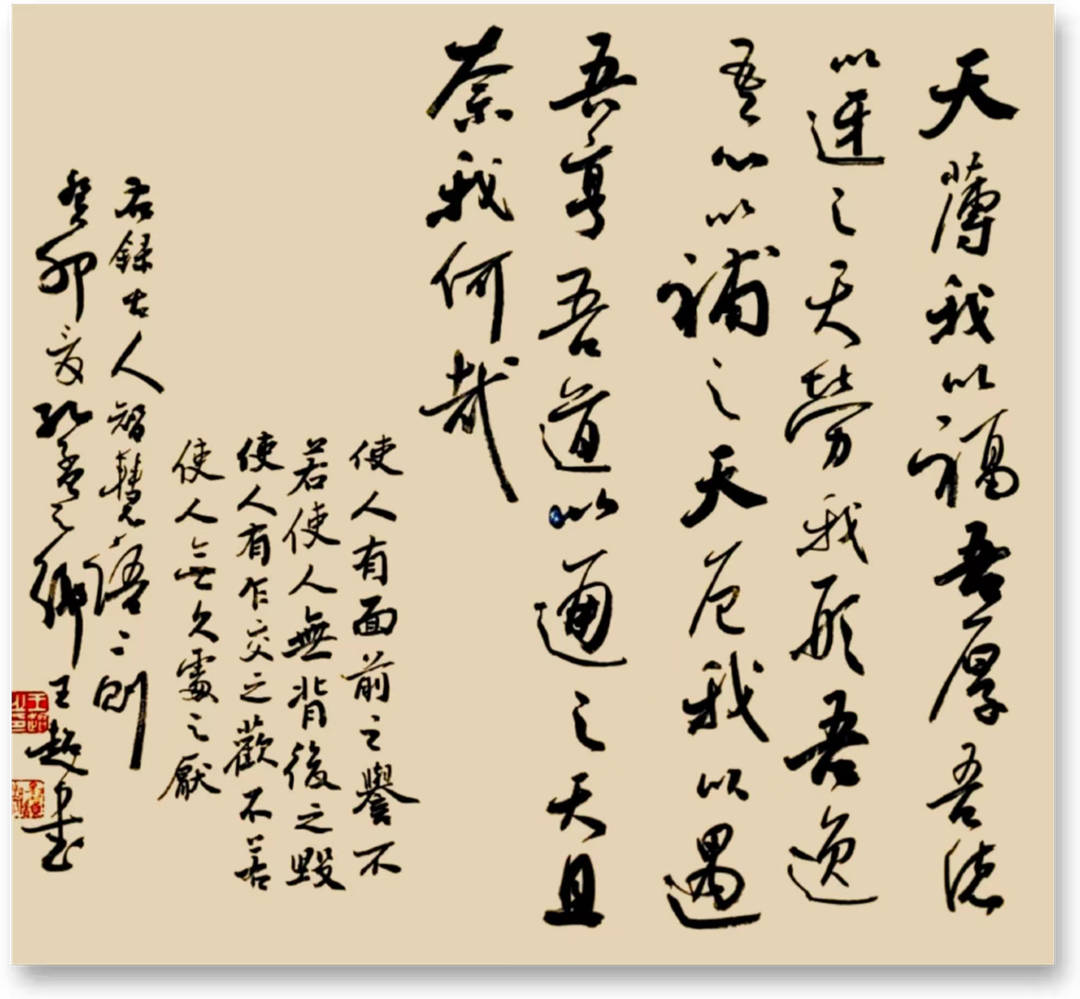 天薄我以福吾厚吾德
以迓之天勞我形吾逸
吾心以補之天厄我以遇
吾亨吾道以通之天且
奈我何哉
使人有面前之譽不
若使人無背後之毀
使人有乍交之歡不若
使人無久處之厭
右錄古人智慧語二則
癸卯夏孔孟之鄉王超書